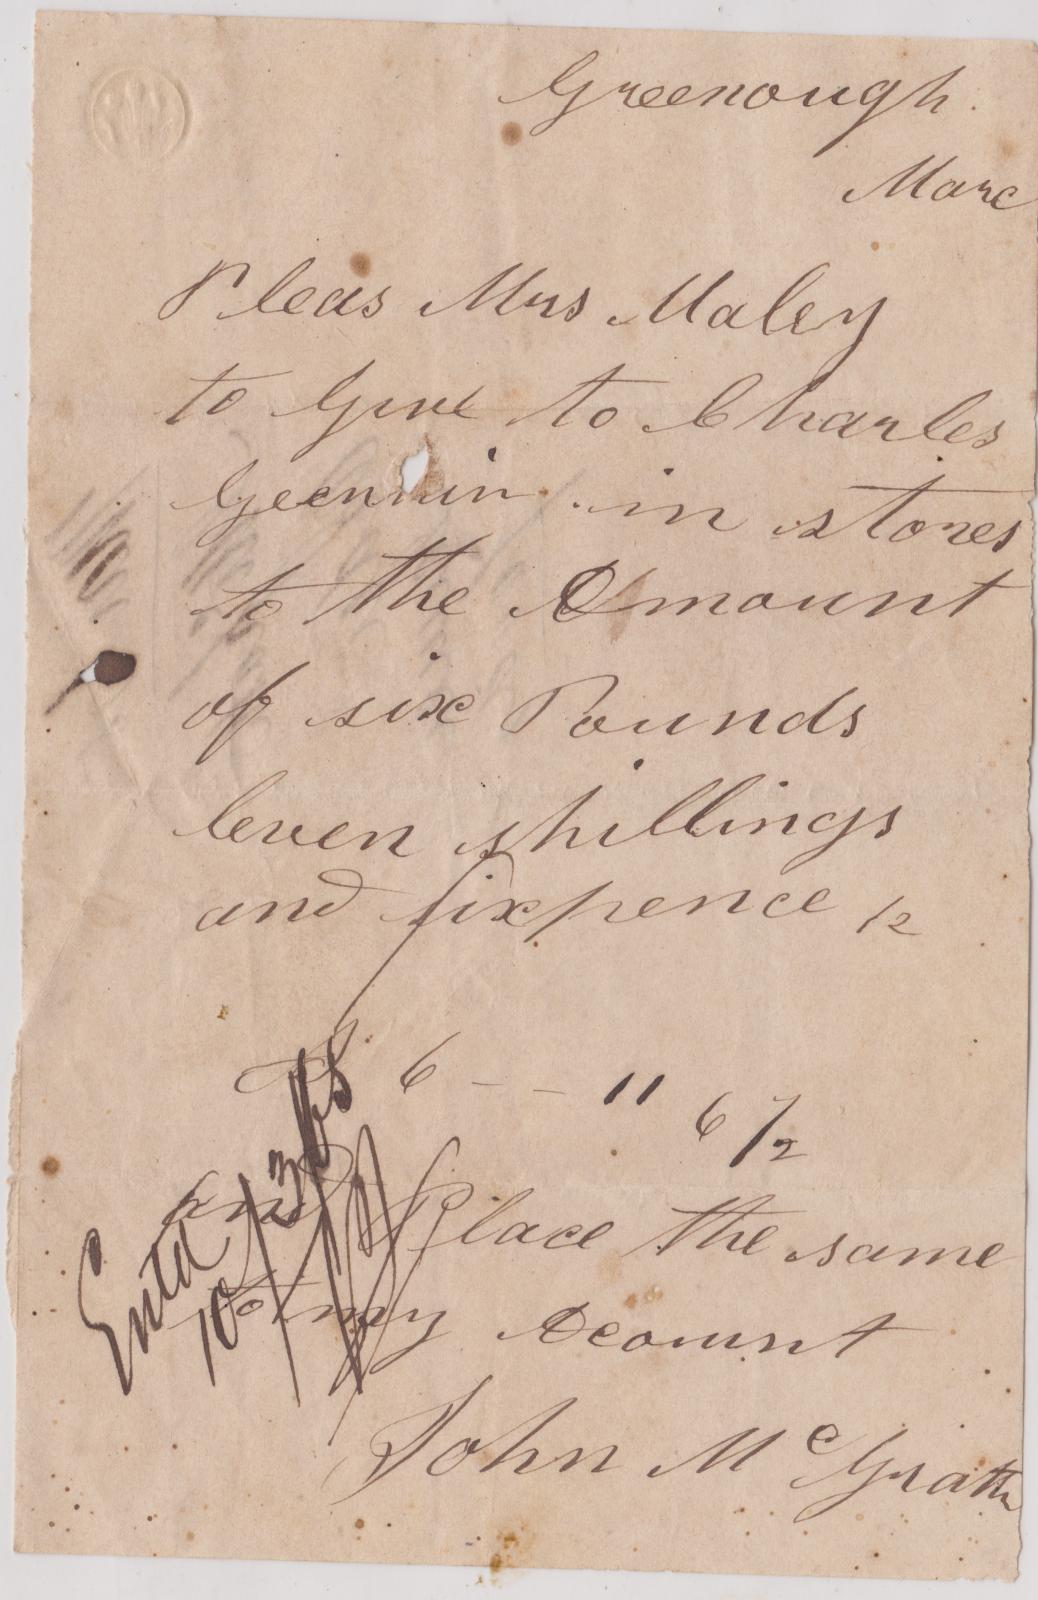 Greenough.
Marc
Pleas Mrs Maley
to Give to Charles
in stores
to the Amount
of six Pounds
leven shillings
and sixpence ½
6 - - 11 6 ½
and Place the same
to my Account
John McGrath
Entd
10/3/68